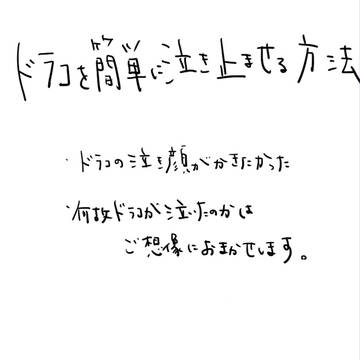 ドラコを簡単に泣き止ませる方法
・ドラコの泣き顔がかきたかった
・何故ドラコが泣いたのかは
ご想像におまかせします。